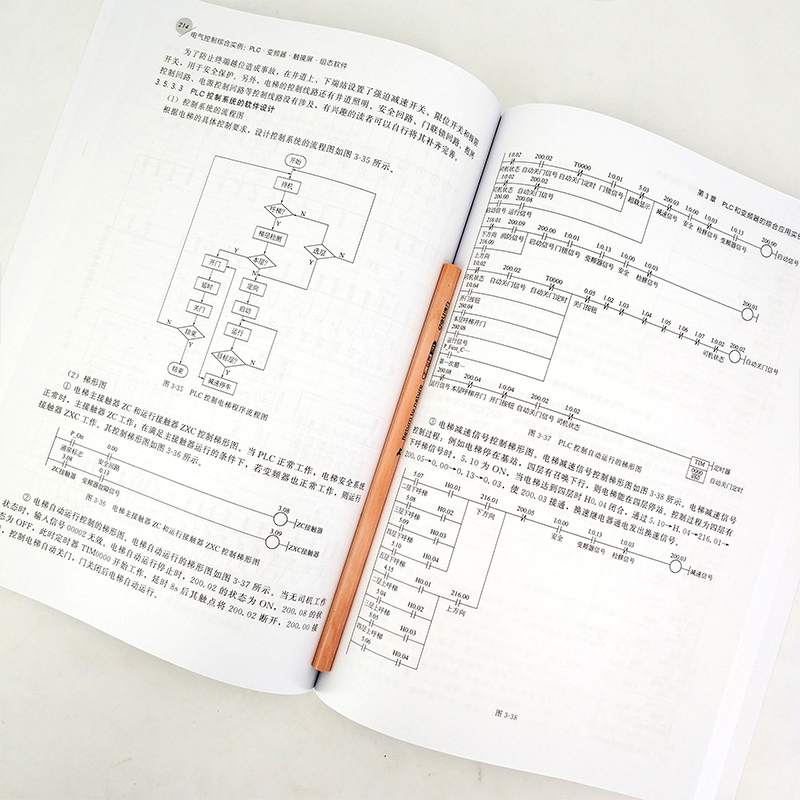 214
电气控制综合实例：PLC·变频器·触摸屏·组态软件
为了防止终端越位造成事故，在井道上、下端站设置了强迫减速开关、限位开关和极限
开关，用于安全保护。另外，电梯的控制线路还有井道照明、安全回路、门联锁回路、检测
控制回路、电源控制回路等控制线路没有涉及，有兴趣的读者可以自行将其补齐完善。
3.5.3.3 PLC控制系统的软件设计
（1）控制系统的流程图
根据电梯的具体控制要求，设计控制系统的流程图如图3-35所示。
开始
待机
呼梯?
N
Y
梯层检测
选层
Y
N
开门
Y
本层?
N
延时
定向
关门
启动
运行
Y
结束
N
目标层?
N
Y
结束
减速停车
图3-35 PLC控制电梯程序流程图
（2）梯形图
① 电梯主接触器ZC和运行接触器ZXC控制梯形图。当PLC正常工作，电梯安全系统
正常时，主接触器ZC工作；在满足主接触器运行的条件下，若变频器也正常工作，则运行
接触器ZXC工作。其控制梯形图如图3-36所示。
P_On 0.00
通常标志 安全回路
3.08
ZC接触器
3.08 0.13
ZC接触器 变频器故障信号
3.09
ZXC接触器
图3-36 电梯主接触器ZC和运行接触器ZXC控制梯形图
② 电梯自动运行控制的梯形图。电梯自动运行的梯形图如图3-37所示。当无司机工作
状态时，输入信号00002无效，电梯自动运行停止时，200.02的状态为ON，200.08的状
态为OFF，此时定时器TIM0000开始工作，延时8s后其触点将200.02断开，200.00接
，控制电梯自动关门，门关闭后电梯自动运行。
第3章 PLC和变频器的综合应用实例
1:0.02 200.02 T0000 1:0.01 5.03 200.03 1:0.00 1:0.03 1:0.13 200.00
司机状态 自动关门信号 自动关门定时 门锁信号 超载显示 减速信号 安全 检修信号 变频器信号 自动信号
1:0.02 200.02
司机状态 自动关门信号
200.00 200.08
自动信号 运行信号
216.01 200.09 200.00 1:0.01 1:0.13 0.00 1:0.03 200.01
下方向 消防信号 启动信号 门锁信号 变频器信号 安全 检修信号
216.00
上方向
1:0.02 200.02 T0000 0.05 1:02 1:03 1:04 1:05 1:06 1:07 1:0.02 200.02
司机状态 自动关门信号 自动关门定时 关门按钮 司机状态 自动关门信号
1:0.04
开门按钮
200.04
本层呼梯开门
200.08
运行信号
P_First_C…
第一次循…
200.08 200.04 1:0.04 200.02 1:0.02
运行信号 本层呼梯开门 开门按钮 自动关门信号 司机状态
TIM
000
#80
定时器
自动关门定时
图3-37 PLC控制自动运行的梯形图
③ 电梯减速信号控制梯形图。电梯减速信号控制梯形图如图3-38所示。电梯减速信号
控制过程：例如电梯停在基站，四层有召唤下行，则电梯能在四层停站。控制过程为四层有
下呼梯信号时，5.10为ON，当电梯达到四层时H0.04闭合，通过5.10→H.04→216.01→
200.05→0.00→0.13→0.03，使200.03接通，换速继电器通电发出换速信号。
5.07 H0.01 216.01 200.05 1:0.00 1:0.13 1:0.03 200.03
二层下呼梯 下方向 安全 变频器信号 检修信号 减速信号
5.08 H0.02
三层下呼梯
5.09 H0.03
四层下呼梯
5.10 H0.04
五层下呼梯
4.15 H0.01 216.00
二层上呼梯 上方向
5.04 H0.02
三层上呼梯
5.05 H0.03
四层上呼梯
5.06 H0.04
图3-38